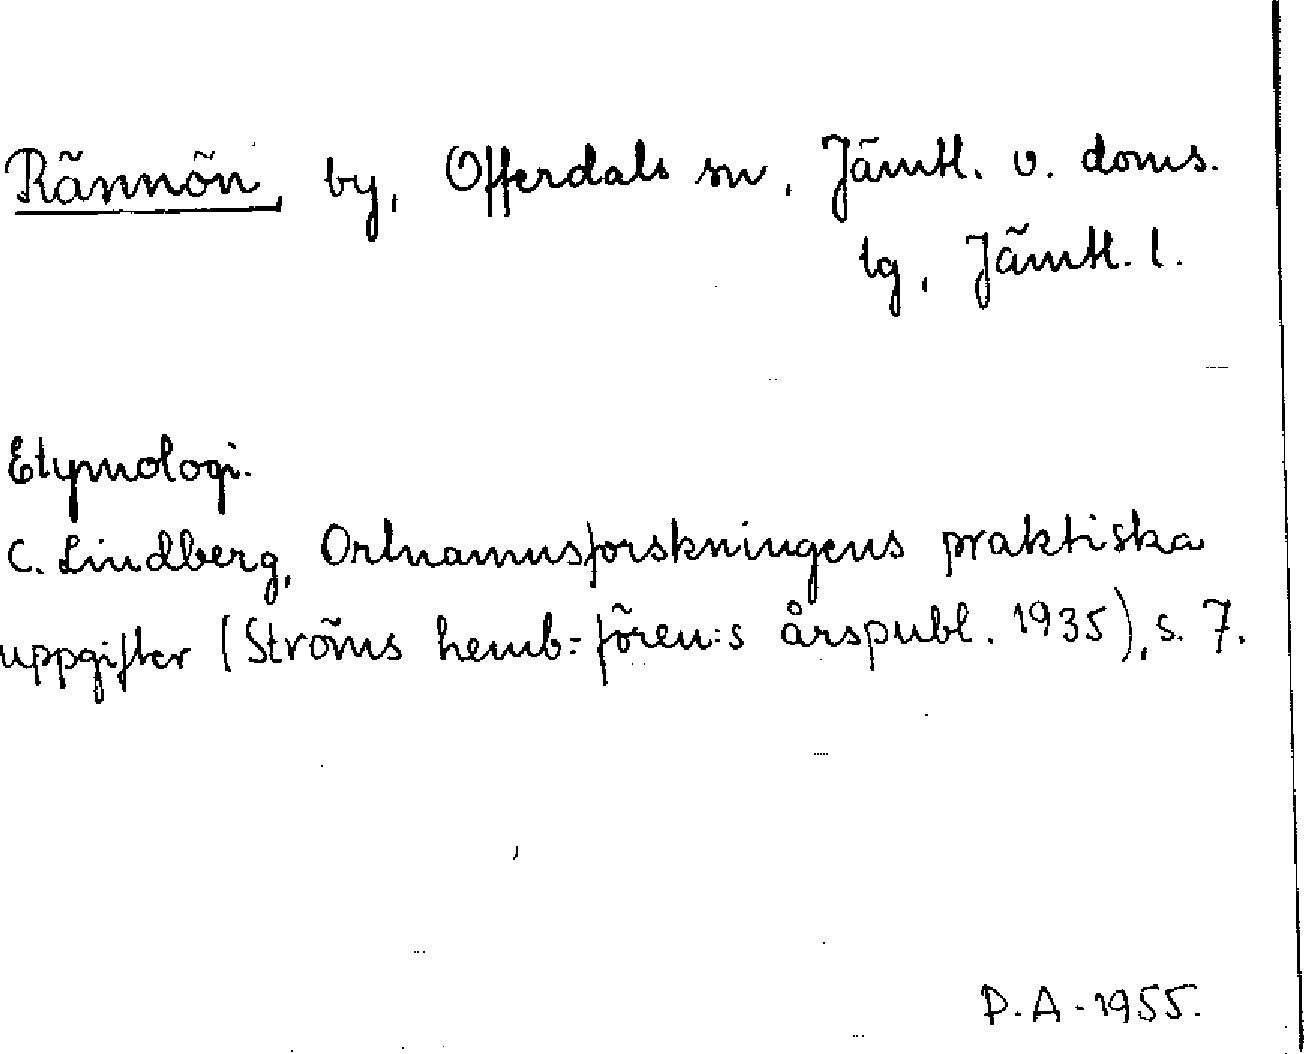 Rännön, by, Offerdals sn, Jämtl. v. doms.
lg, Jämtl. l.
Etymologi.
C. Lindberg, Ortnamnsforskningens praktiska
uppgifter (Ströms hemb:fören:s årspubl. 1935), s. 7.
P.A. 1955.